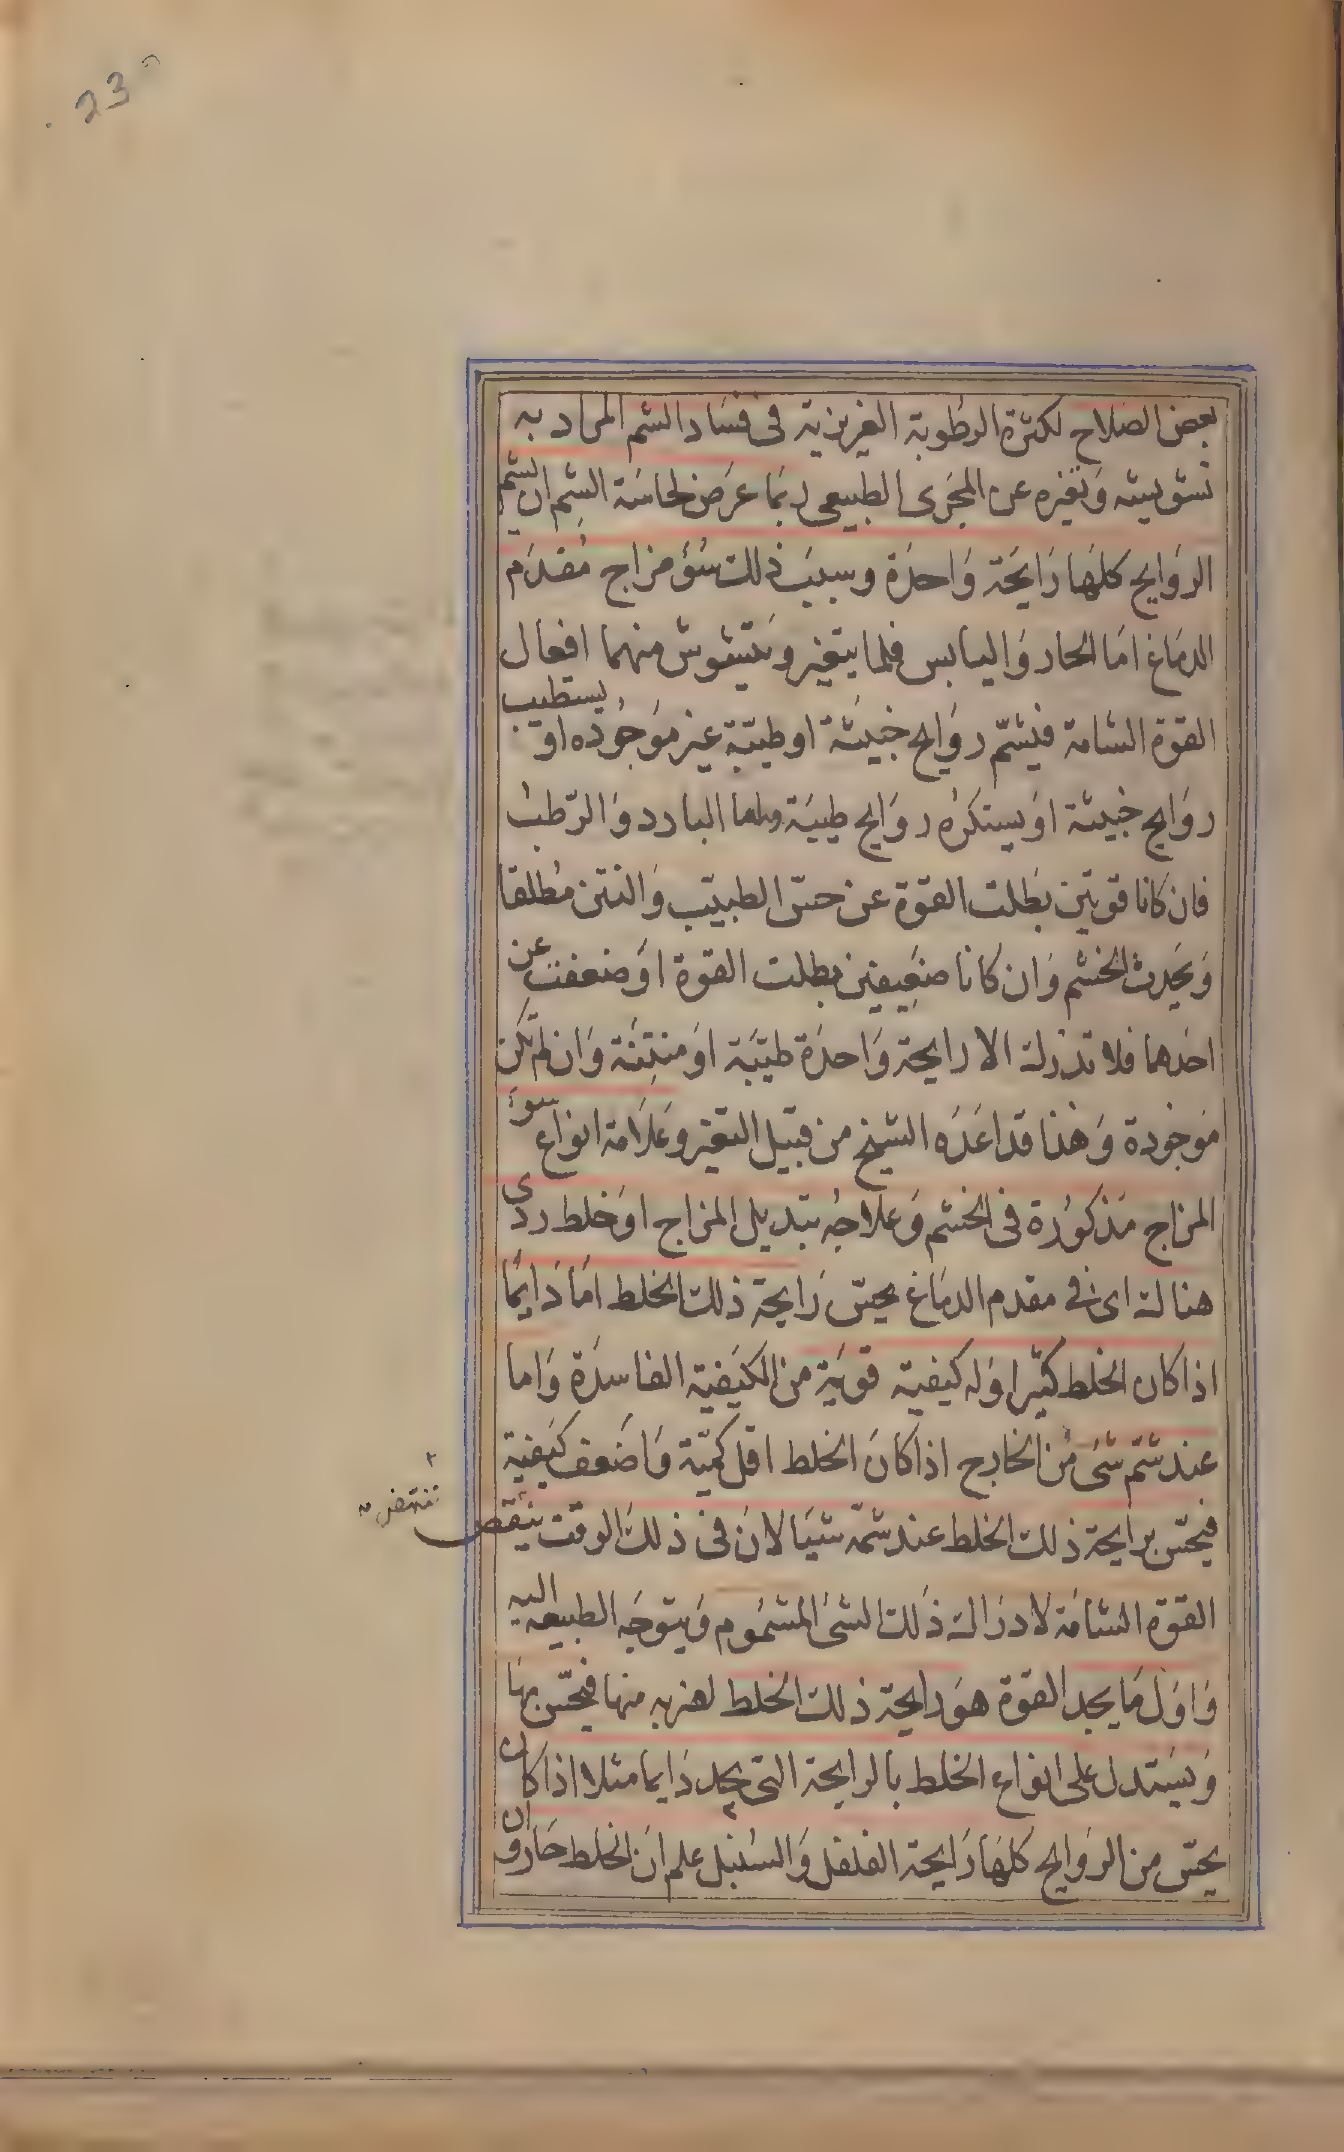 23
بعض الصلاح لكثرة الرطوبة الغريزية فى فساد الشم المراد به
تشويشه وتغيره عن المجرى الطبيعى ربما عرض لحاسة الشم ان يشم
الروايح كلها رايحة واحدة وسبب ذلك سؤ مزاج مقدم
الدماغ اما الحار واليابس فلما يتغير ويتشوش منهما افعال
القوة الشامة فيشم روايح خبيثة او طيبة غير موجوده او يستطيب
روايح خبيثة او يستكره روايح طيبة واما البارد والرطب
فان كانا قويين بطلت القوة عن حس الطيب والنتن مطلقا
ويحدث الخشم وان كانا ضعيفين بطلت القوة او ضعفت عن
احدهما فلا تدرك الا رايحة واحدة طيبة او منتنة وان لم تكن
موجودة وهذا قد اعده الشيخ من قبيل التغير وعلامة انواع سوء
المزاج مذكورة فى الخشم وعلاجه بتبديل المزاج او خلط ردى
هناك اى فى مقدم الدماغ يحس رايحة ذلك الخلط اما دايما
اذا كان الخلط كثيرا وله كيفية قوية من الكيفية الفاسدة واما
عند شم شى من الخارج اذا كان الخلط اقل كمية واضعف كيفية
فيحس برايحة ذلك الخلط عند شمه شيا لان فى ذلك الوقت ينتقص
القوة الشامة لادراك ذلك الشى المشموم ويتوجه الطبيعه اليه
واول ما يجد القوة هو رايحة ذلك الخلط لقربه منها فيحس بها
ويستدل على انواع الخلط بالرايحة التى يجد دايما مثلا اذا كان
يحس من الروايح كلها رايحة الفلفل والسنبل علم ان الخلط حار وان